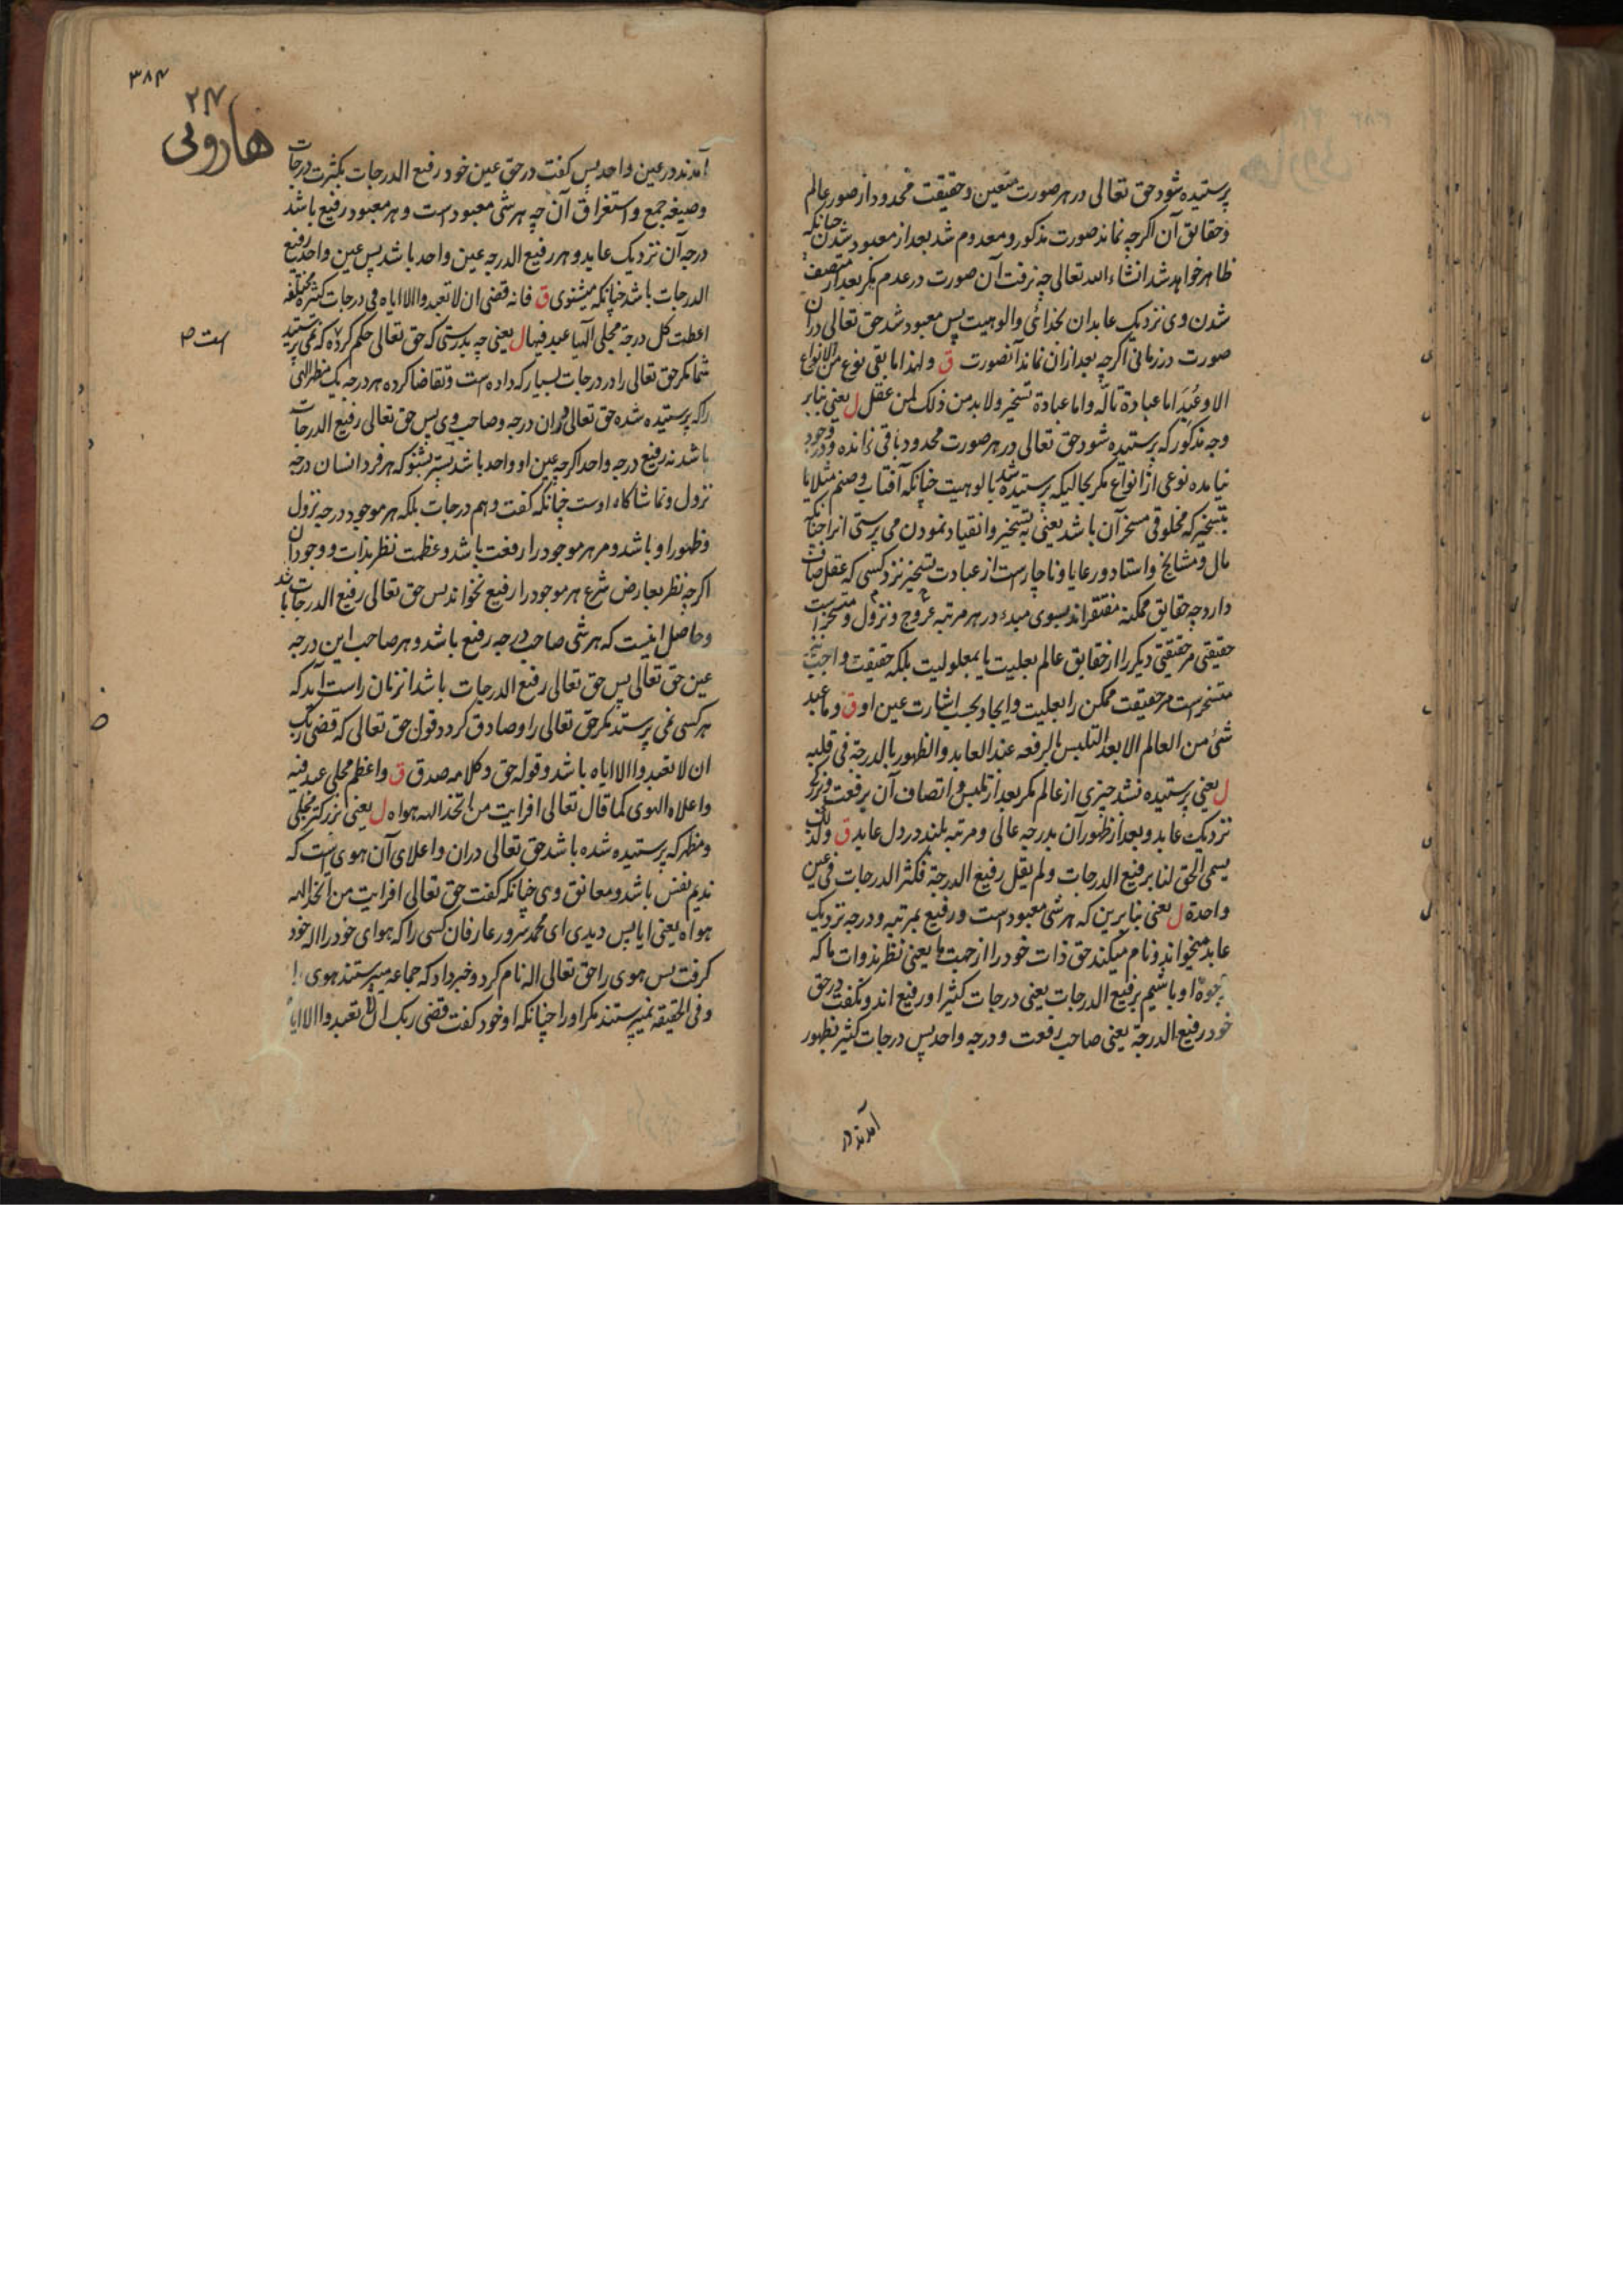 پرستیده شود حق تعالی در هر صورت متعین و حقیقت محدود از صور عالم
و حقایق آن اکرچه نماند صورت مذکور و معدوم شد بعد از معبود شدن چنانکه
ظاهر خواهد شد انشاء الله تعالی چه نرفت آن صورت در عدم مکر بعد از متصف
شدن وی نزدیک عابدان بخدائی والوهیت پس معبود شد حق تعالی دران
صورت در زمانی اکرچه بعد ازان نماند آنصورت ق ولهذا ما بقی نوع من الانواع
الا وعُبِدَ اما عبادة تألّه واما عبادة تسخیر ولا بد من ذلک لمن عقل ل یعنی بنابر
وجه مذکور که پرستیده شود حق تعالی در هر صورت محدود باقی نمانده و در وجود
نیامده نوعی از انواع مکر بحالیکه پرستیده شد بالوهیت چنانکه آفتاب و صنم مثلا یا
بتسخیر که مخلوقی مسخر آن باشد یعنی به تسخیر وانقیاد نمودن می پرستی انرا چنانکه
مال و مشایخ واستاد ورعایا وناچارست از عبادت تسخیر نزد کسی که عقل صاف
دارد چه حقایق ممکنه مفتقراند بسوی مبدء در هر مرتبه عروج ونزول ومتسخر است
حقیقتی مر حقیقتی دیکر را از حقایق عالم بعلیت یا بمعلولیت بلکه حقیقت واجب نیز
متسخر است مر حقیقت ممکن را بعلیت وایجاد بحسب اشارت عین او ق وما عبد
شیٔ من العالم الا بعد التلبس بالرفعه عند العابد والظهور بالدرجة فی قلبه
ل یعنی پرستیده نشد چیزی از عالم مکر بعد از تلبس واتصاف آن برفعت وبزرکی
نزدیک عابد وبعد از ظهور آن بدرجه عالی ومرتبه بلند در دل عابد ق ولذلک
یسمی الحق لنا برفیع الدرجات ولم یقل رفیع الدرجة فکثر الدرجات فی عین
واحدة ل یعنی بنابرین که هر شی معبود است ورفیع بمرتبه ودرجه نزدیک
عابد میخواند ونام میکند حق ذات خود را از جهت ما یعنی نظر بذوات ما که
وجوه او باشیم برفیع الدرجات یعنی درجات کثیر او رفیع اند ونکفت در حق
خود رفیع الدرجة یعنی صاحب رفعت ودرجه واحد پس درجات کثیر بظهور
آمدند در
۳۸۴
۲۴
هارونی
آمدند در عین واحد پس کفت در حق عین خود رفیع الدرجات بکثرت درجات
وصیغه جمع واستغراق آن چه هر شی معبود است وهر معبود رفیع باشد
درجه آن نزدیک عابد وهر رفیع الدرجه عین واحد باشد پس عین واحد رفیع
الدرجات باشد چنانکه میشنوی ق فانه قضی ان لا تعبدوا الا ایاه فی درجات کثیرة مختلفه
اعطت کل درجة مجلی الهیا عبد فیها ل یعنی چه بدرستی که حق تعالی حکم کرده که نمی پرستید
شما مکر حق تعالی را در درجات بسیار که داده است وتقاضا کرده هر درجه یک مظهر الهی
را که پرستیده شده حق تعالی دران درجه وصاحب وی پس حق تعالی رفیع الدرجات
باشد نه رفیع درجه واحد اکرچه عین او واحد باشد پستر بشنو که هر فرد انسان درجه
نزول وتماشاکاه اوست چنانکه کفت وهم درجات بلکه هر موجود درجه نزول
وظهور او باشد ومر هر موجود را رفعت باشد وعظمت نظر بذات ووجود آن
اکرچه نظر بعارض شرع هر موجود را رفیع نخواند پس حق تعالی رفیع الدرجات باشد
وحاصل اینست که هر شی صاحب درجه رفیع باشد وهر صاحب این درجه
عین حق تعالی پس حق تعالی رفیع الدرجات باشد انزمان راست آید که
هر کسی نمی پرستد مکر حق تعالی را وصادق کردد قول حق تعالی که قضی ربک
ان لا تعبدوا الا ایاه باشد وقوله حق وکلامه صدق ق واعظم مجلی عبد فیه
واعلاه الهوی کما قال تعالی افرایت من اتخذ الهه هواه ل یعنی بزرکتر مجلی
ومظهر که پرستیده شده باشد حق تعالی دران واعلای آن هوی است که
ندیم نفس باشد ومعانق وی چنانکه کفت حق تعالی افرایت من اتخذ الهه
هواه یعنی ایا پس دیدی ای محمد سرور عارفان کسی را که هوای خود را اله خود
کرفت پس هوی را حق تعالی اله نام کرد وخبر داد که جماعه میپرستند هوی را
وفی الحقیقه نمیپرستند مکر او را چنانکه او خود کفت قضی ربک ان لا تعبدوا الا ایاه